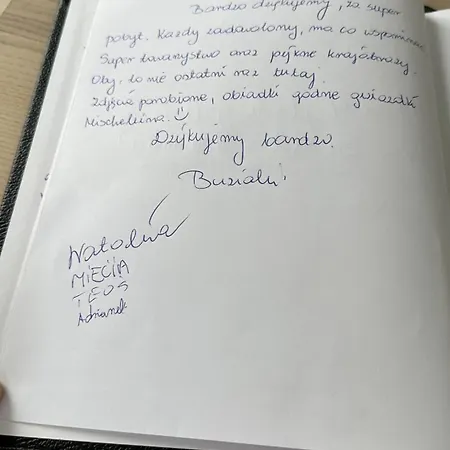 Bardzo dziękujemy, za super
pobyt. Każdy zadowolony, ma co wspominać
Super towarzystwo oraz piękne krajobrazy.
Oby, to nie ostatni raz tutaj.
Zdjęcia porobione, obiadki godne gwiazdki
Mischelina. ☺
Dziękujemy bardzo.
Buziaki!
MIECIA
TEOŚ
Adrianek